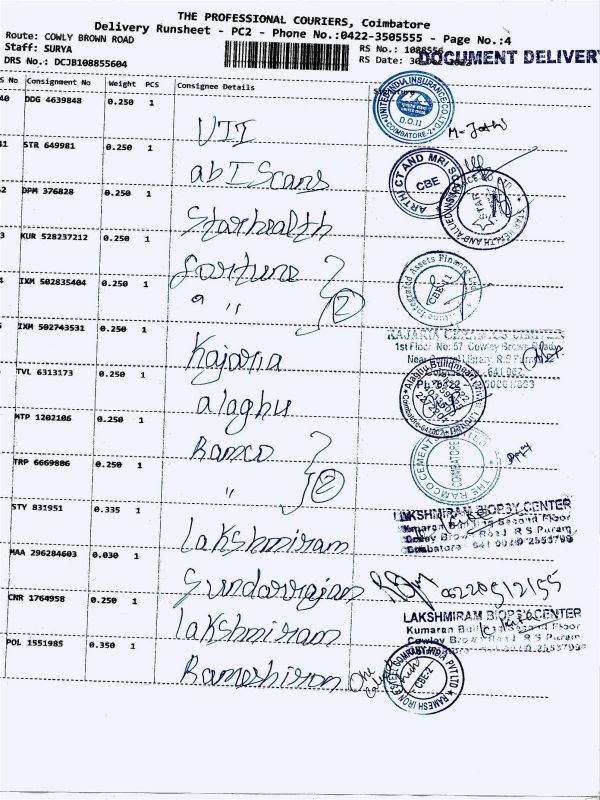 THE PROFESSIONAL COURIERS, Coimbatore
Delivery Runsheet - PC2 - Phone No.:0422-3505555 - Page No.:4
Route: COWLY BROWN ROAD
Staff: SURYA
DRS No.: DCJB108855604
RS No.: 1088556
RS Date: 30
DOCUMENT DELIVERY
S No Consignment No Weight PCS Consignee Details Signature
40 DDG 4639848 0.250 1 UII
UNITED INDIA INSURANCE CO. LTD. D.O.II COIMBATORE-2
41 STR 649981 0.250 1 ab I Scans
ARTHI CT AND MRI CBE
2 DPM 376828 0.250 1 Starhealth
STAR HEALTH AND ALLIED INSURANCE
3 KUR 528237212 0.250 1 fortune
Integrated Assets Finance Ltd. CBE-2
4 IXM 502835404 0.250 1 " 2
IXM 502743531 0.250 1 Kajaria
KAJARIA CERAMICS LIMITED
1st Floor, No: 57 Cowley Brown Road,
Near Library, R.S Puram
TVL 6313173 0.250 1 alaghu
Alaghu Buildmeart
MTP 1202106 0.250 1 Ramco
THE RAMCO CEMENT LIMITED COIMBATORE
TRP 6669886 0.250 1 " 2
STY 831951 0.335 1 Lakshmiram
LAKSHMIRAM BIOPSY CENTER
Kumaran Second Floor
Cowley Brown Road R S Puram
Coimbatore
MAA 296284603 0.030 1 Sundarrajan
CNR 1764958 0.250 1 lakshmiram
LAKSHMIRAM BIOPSY CENTER
Kumaran Second Floor
Cowley Brown Road R S Puram
POL 1551985 0.350 1 Rameshiron
RAMESH IRON STEEL COMPANY INDIA PVT LTD CBE-2